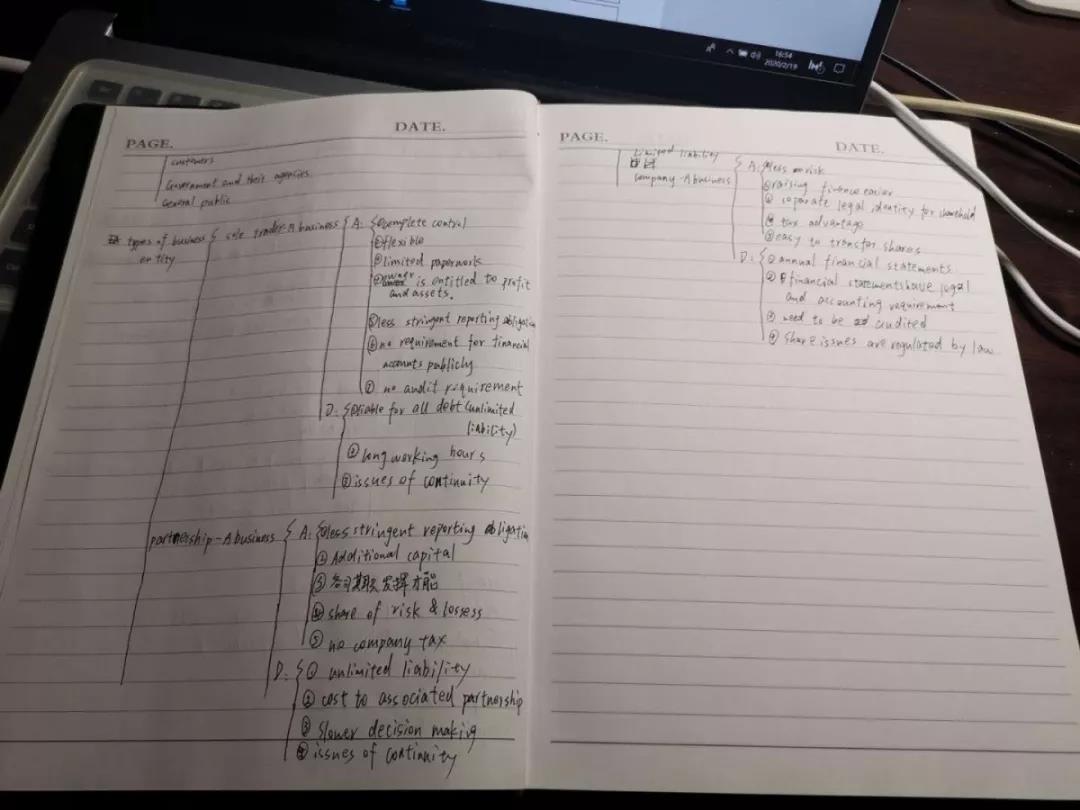 16:54
2020/2/19
PAGE.
DATE.
customers
Government and their agencies.
General public
types of business
entity
sole trader-A business
A: ①complete control
②flexible
③limited paperwork
④owner is entitled to profit
and assets.
⑤less stringent reporting obligation
⑥ no requirement for financial
accounts publicly
⑦ no audit requirement
D: ①liable for all debt (unlimited
liability)
② long working hours
③ issues of continuity
partnership-A business
A: ①less stringent reporting obligation
② Additional capital
③ 发挥才能
④ share of risk & lossess
⑤ no company tax
D: ① unlimited liability
② cost to associated partnership
③ slower decision making
④ issues of continuity
PAGE.
DATE.
Limited liability
company-A business
A: ①less risk
②raising finance easier
③ separate legal identity for shareholder
④ tax advantage
⑤ easy to transfer shares
D: ① annual financial statements
② financial statements have legal
and accounting requirement
③ need to be audited
④ share issues are regulated by law